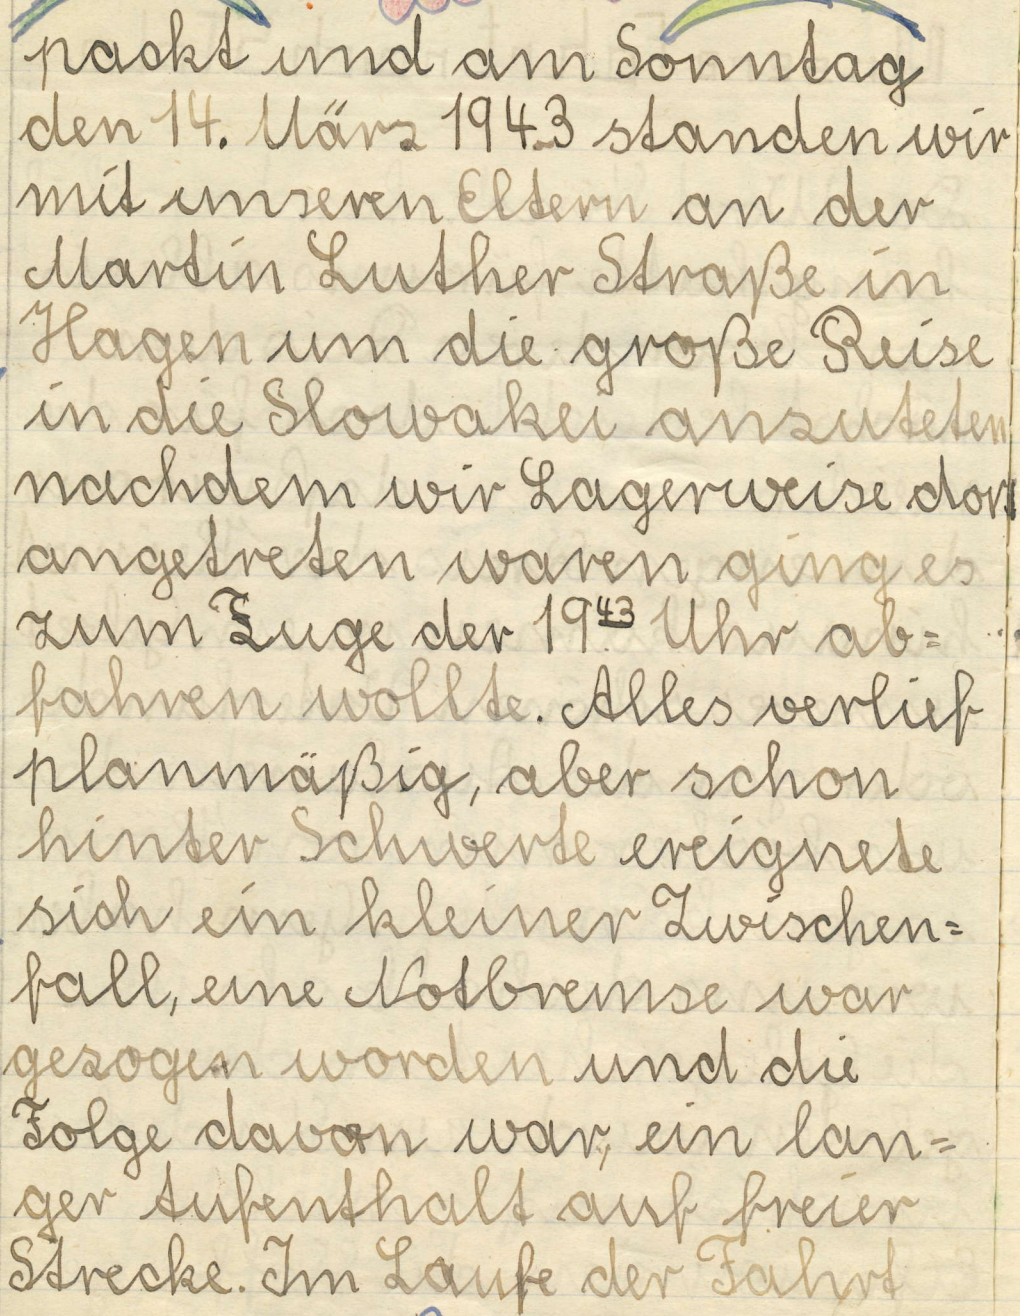 packt und am Sonntag
den 14. März 1943 standen wir
mit unseren Eltern an der
Martin Luther Straße in
Hagen um die große Reise
in die Slowakei anzuteten
nachdem wir Lagerweise dort
angetreten waren ging es
zum Zuge der 19.43 Uhr ab=
fahren wollte. Alles verlief
planmäßig, aber schon
hinter Schwerte ereignete
sich ein kleiner Zwischen=
fall, eine Notbremse war
gezogen worden und die
Folge davon war, ein lan=
ger Aufenthalt auf freier
Strecke. Im Laufe der Fahrt